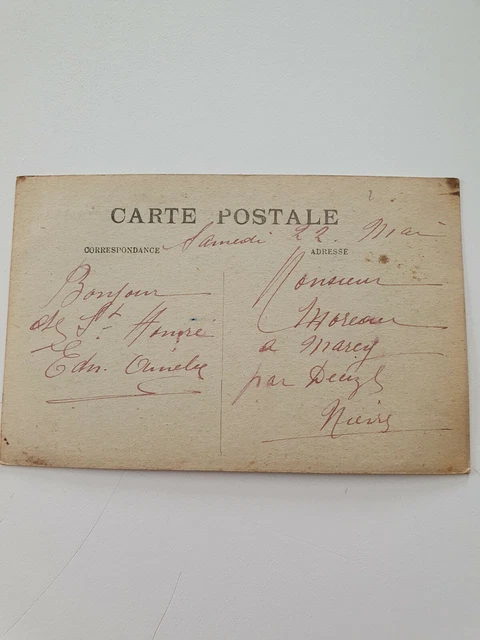 CARTE POSTALE
CORRESPONDANCE
ADRESSE
Samedi 22 Mai
Bonjour
de St Honoré
Edm. Amélie
Monsieur
Moreau
a Marcy
par
Nièvre